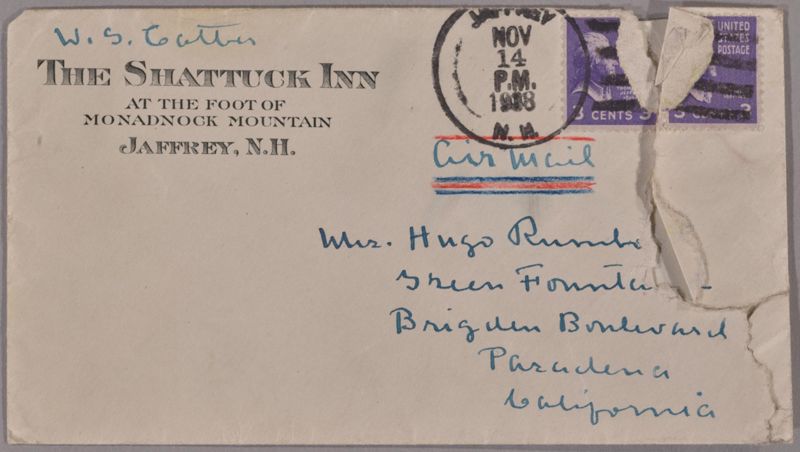 W. S. Cather
THE SHATTUCK INN
AT THE FOOT OF
MONADNOCK MOUNTAIN
JAFFREY, N.H.
JAFFREY
NOV
14
P.M.
1938
N. H.
3 CENTS 3
UNITED
STATES
POSTAGE
3
Air Mail
Mrs. Hugo
Green
Brigden Boulevard
Pasadena
California